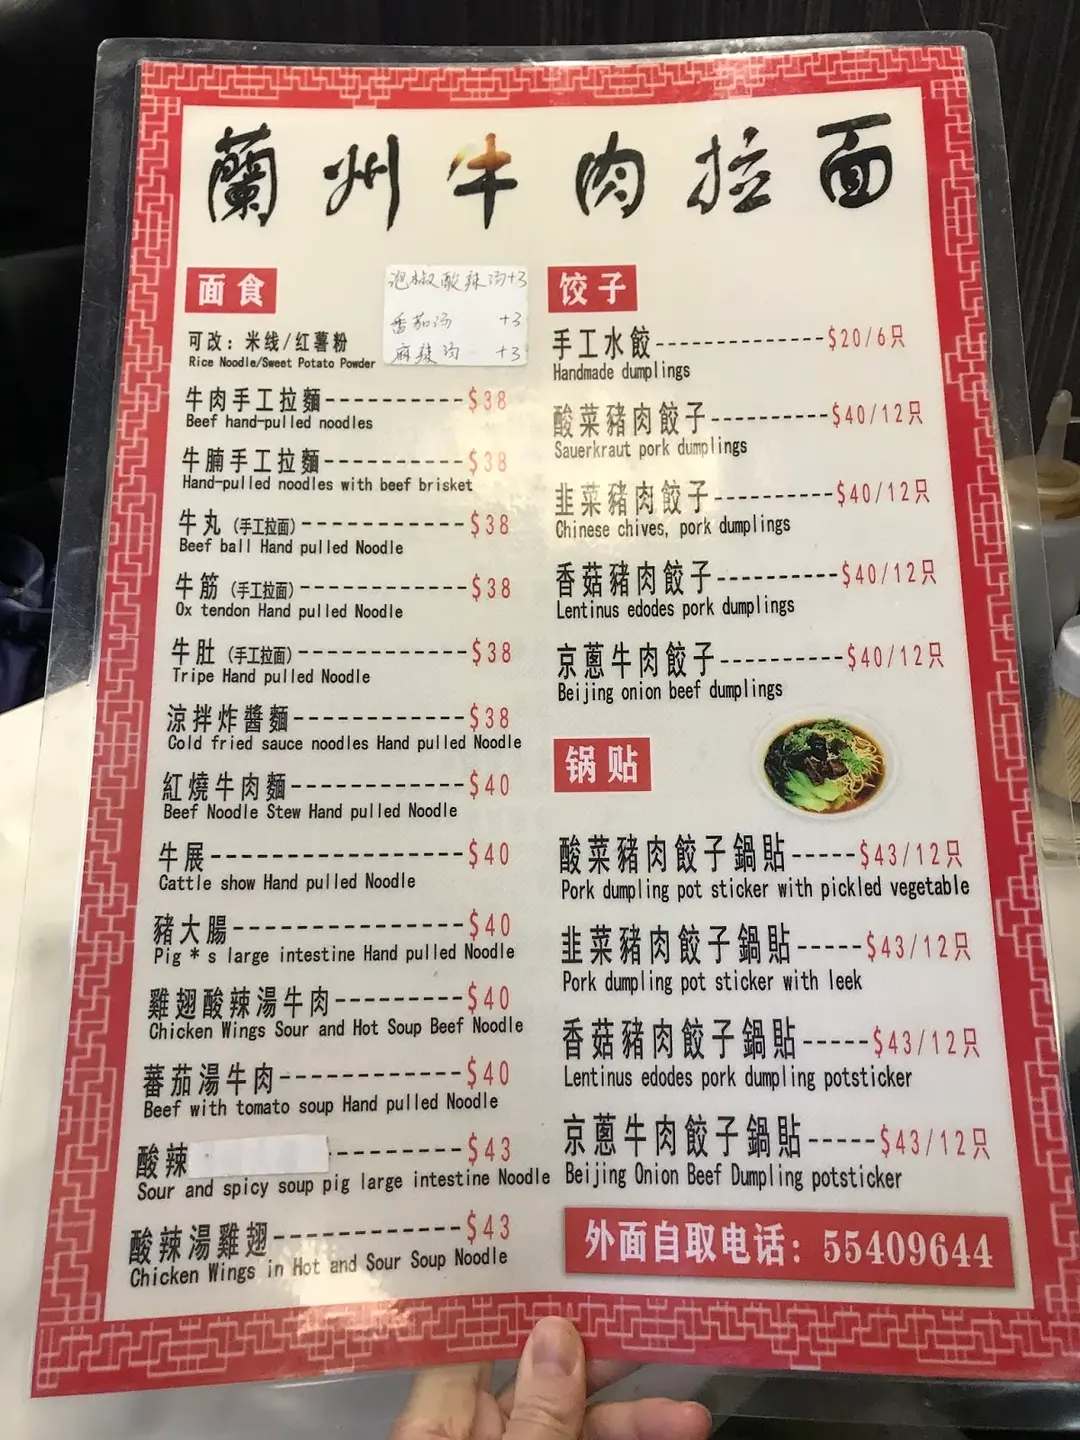 蘭州牛肉拉面
面食
泡椒酸辣汤+3
番茄汤 +3
麻辣汤 +3
可改：米线/红薯粉
Rice Noodle/Sweet Potato Powder
牛肉手工拉麵----------$38
Beef hand-pulled noodles
牛腩手工拉麵----------$38
Hand-pulled noodles with beef brisket
牛丸（手工拉面）------------$38
Beef ball Hand pulled Noodle
牛筋（手工拉面）------------$38
Ox tendon Hand pulled Noodle
牛肚（手工拉面）------------$38
Tripe Hand pulled Noodle
涼拌炸醬麵------------$38
Cold fried sauce noodles Hand pulled Noodle
紅燒牛肉麵------------$40
Beef Noodle Stew Hand pulled Noodle
牛展-----------------$40
Cattle show Hand pulled Noodle
豬大腸----------------$40
Pig * s large intestine Hand pulled Noodle
雞翅酸辣湯牛肉---------$40
Chicken Wings Sour and Hot Soup Beef Noodle
蕃茄湯牛肉------------$40
Beef with tomato soup Hand pulled Noodle
酸辣---------$43
Sour and spicy soup pig large intestine Noodle
酸辣湯雞翅------------$43
Chicken Wings in Hot and Sour Soup Noodle
饺子
手工水餃--------------$20/6只
Handmade dumplings
酸菜豬肉餃子----------$40/12只
Sauerkraut pork dumplings
韭菜豬肉餃子----------$40/12只
Chinese chives, pork dumplings
香菇豬肉餃子----------$40/12只
Lentinus edodes pork dumplings
京蔥牛肉餃子----------$40/12只
Beijing onion beef dumplings
锅贴
酸菜豬肉餃子鍋貼-----$43/12只
Pork dumpling pot sticker with pickled vegetable
韭菜豬肉餃子鍋貼-----$43/12只
Pork dumpling pot sticker with leek
香菇豬肉餃子鍋貼-----$43/12只
Lentinus edodes pork dumpling potsticker
京蔥牛肉餃子鍋貼-----$43/12只
Beijing Onion Beef Dumpling potsticker
外面自取电话：55409644